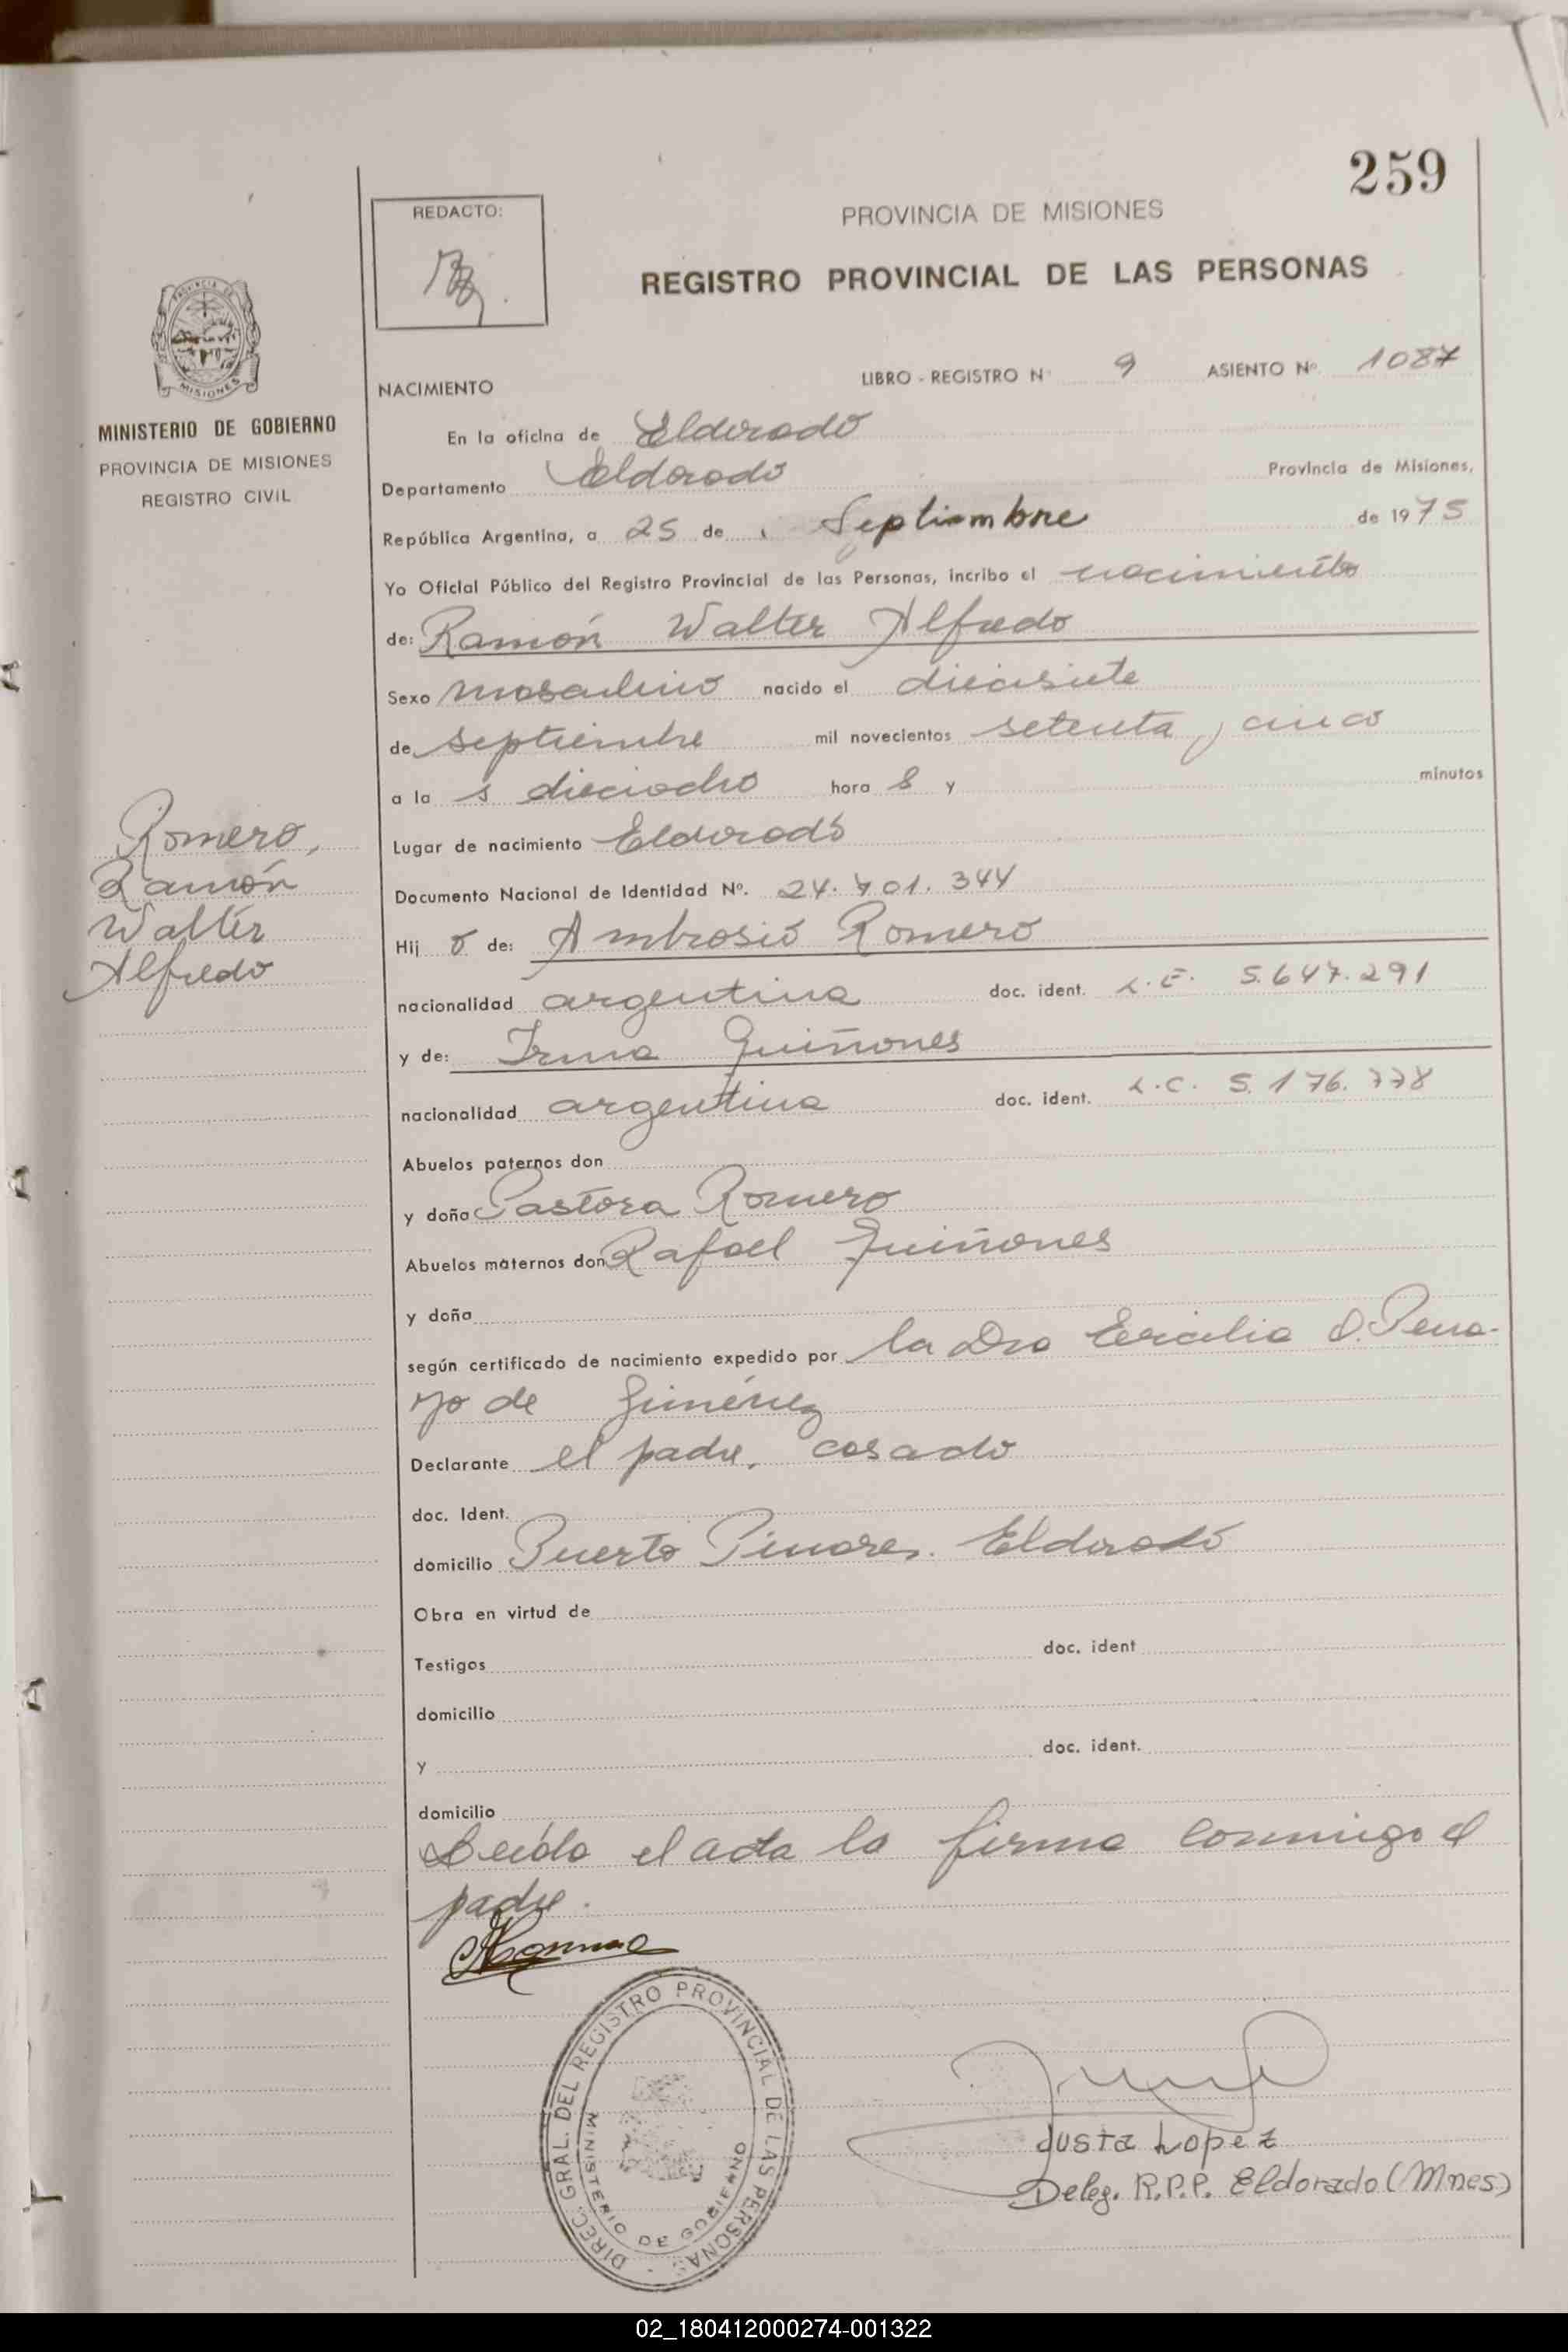 259
REDACTO:
PROVINCIA DE MISIONES
REGISTRO PROVINCIAL DE LAS PERSONAS
MINISTERIO DE GOBIERNO
PROVINCIA DE MISIONES
REGISTRO CIVIL
NACIMIENTO LIBRO - REGISTRO Nº 9 ASIENTO Nº 1087
En la oficina de Eldorado
Departamento Eldorado Provincia de Misiones,
República Argentina, a 25 de Septiembre de 1975
Yo Oficial Público del Registro Provincial de las Personas, incribo el nacimiento
de: Ramón Walter Alfredo
Sexo masculino nacido el diecisiete
de septiembre mil novecientos setenta y cinco
a la s dieciocho hora s y minutos
Lugar de nacimiento Eldorado
Documento Nacional de Identidad Nº. 24.701.344
Hij o de: Ambrosio Romero
nacionalidad argentina doc. ident. L.E. 5.647.291
y de: Irma Quiñones
nacionalidad argentina doc. ident. L.C. 5.176.778
Abuelos paternos don
y doña Pastora Romero
Abuelos maternos don Rafael Quiñones
y doña
según certificado de nacimiento expedido por la Dra Ercilia O. Pena-
yo de Giménez
Declarante el padre, casado
doc. Ident.
domicilio Puerto Pinares. Eldorado
Obra en virtud de
Testigos doc. ident
domicilio
y doc. ident.
domicilio
Leída el acta la firma conmigo el
padre.
Romero,
Ramón
Walter
Alfredo
DIREC. GRAL. DEL REGISTRO PROVINCIAL DE LAS PERSONAS
MINISTERIO DE GOBIERNO
Justa Lopez
Deleg. R.P.P. Eldorado (Mnes)
02_180412000274-001322